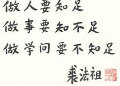 做人要知足
做事要知不足
做学问要不知足
裘法祖